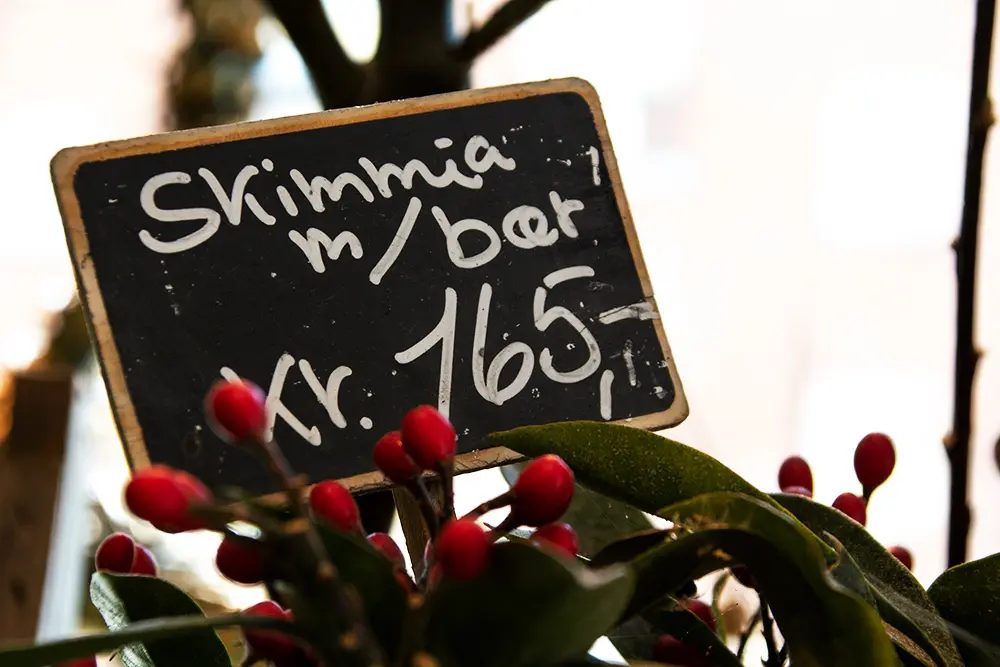 Skimmia
m/bær
Kr. 165,-